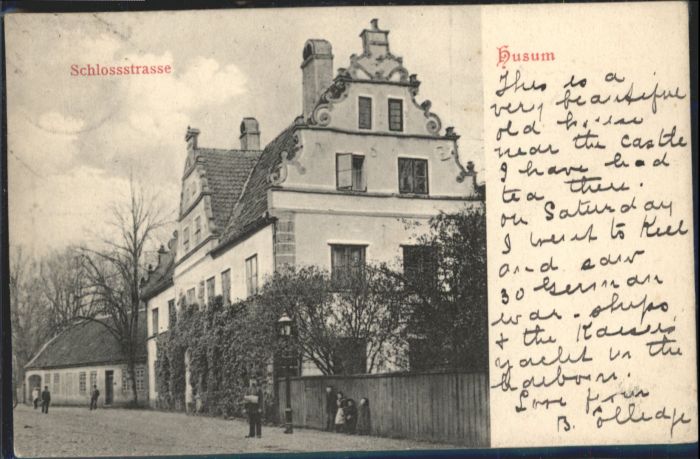 Schlossstrasse
Husum
This is a
very beautiful
old house
near the castle
I have had
tea there.
on Saturday
I went to Kiel
and saw
30 German
war-ships
& the Kaisers
yacht in the
harbour.
Love from
B.